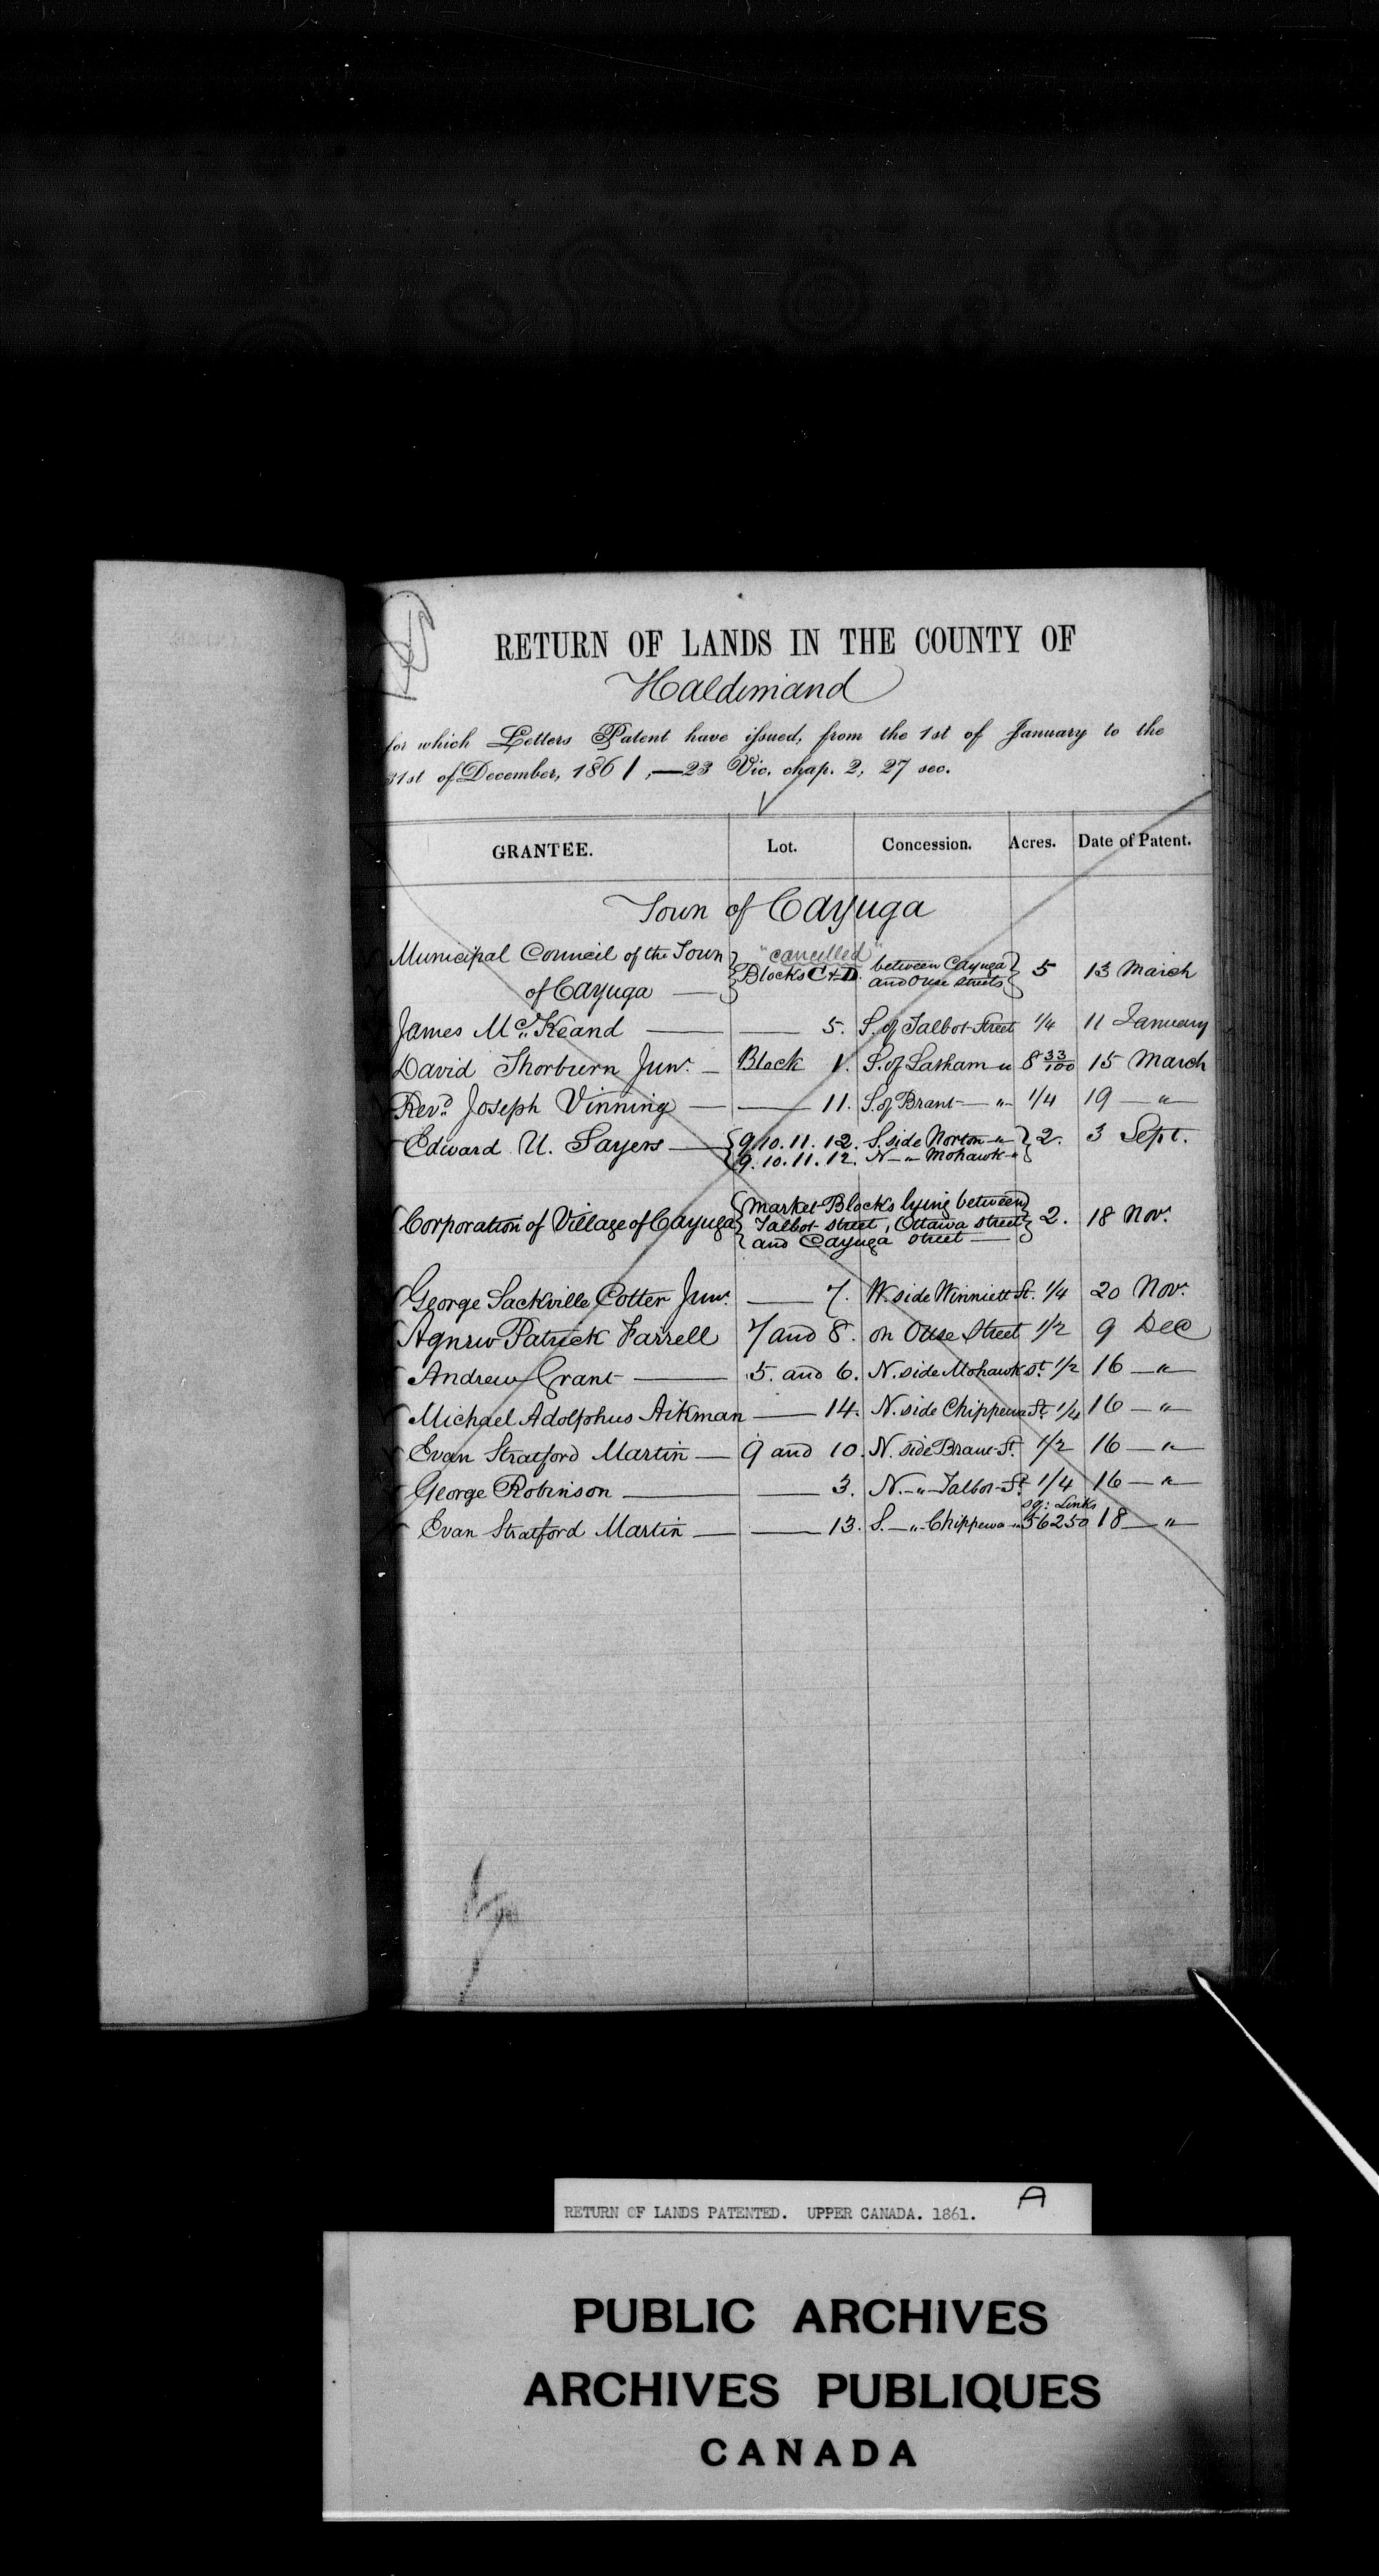 RETURN OF LANDS IN THE COUNTY OF
Haldimand
for which Letters Patent have issued, from the 1st of January to the
31st of December, 1861,—23 Vic. chap. 2, 27 sec.
GRANTEE. Lot. Concession. Acres. Date of Patent.
Town of Cayuga
Municipal Council of the Town "cancelled" between Cayuga
of Cayuga — Blocks C & D. and Ouse streets 5 13 March
James McKeand — 5. S. of Talbot Street 1/4 11 January
David Thorburn Junr. — Block 1. S. of Latham " 8 33/100 15 March
Revd. Joseph Vinning — 11. S. of Brant — " 1/4 19 — " —
Edward U. Sayers — 9.10.11.12. S. side Norton " 2. 3 Sept.
9.10.11.12. N — " Mohawk "
Market Blocks lying between
Corporation of Village of Cayuga Talbot street, Ottawa street 2. 18 Nov.
and Cayuga street —
George Sackville Cotter Junr. — 7. W. side Winniett St. 1/4 20 Novr.
Agnew Patrick Farrell 7 and 8. on Ouse Street 1/2 9 Dec
Andrew Grant — 5. and 6. N. side Mohawk St. 1/2 16 — " —
Michael Adolphus Aikman — 14. N. side Chippewa St. 1/4 16 — " —
Evan Stratford Martin — 9 and 10. N. side Brant St. 1/2 16 — " —
George Robinson — 3. N. — " Talbot St 1/4 16 — " —
sq: Links
Evan Stratford Martin — 13. S. — " Chippewa — " 56250 18 — " —
RETURN OF LANDS PATENTED. UPPER CANADA. 1861. A
PUBLIC ARCHIVES
ARCHIVES PUBLIQUES
CANADA